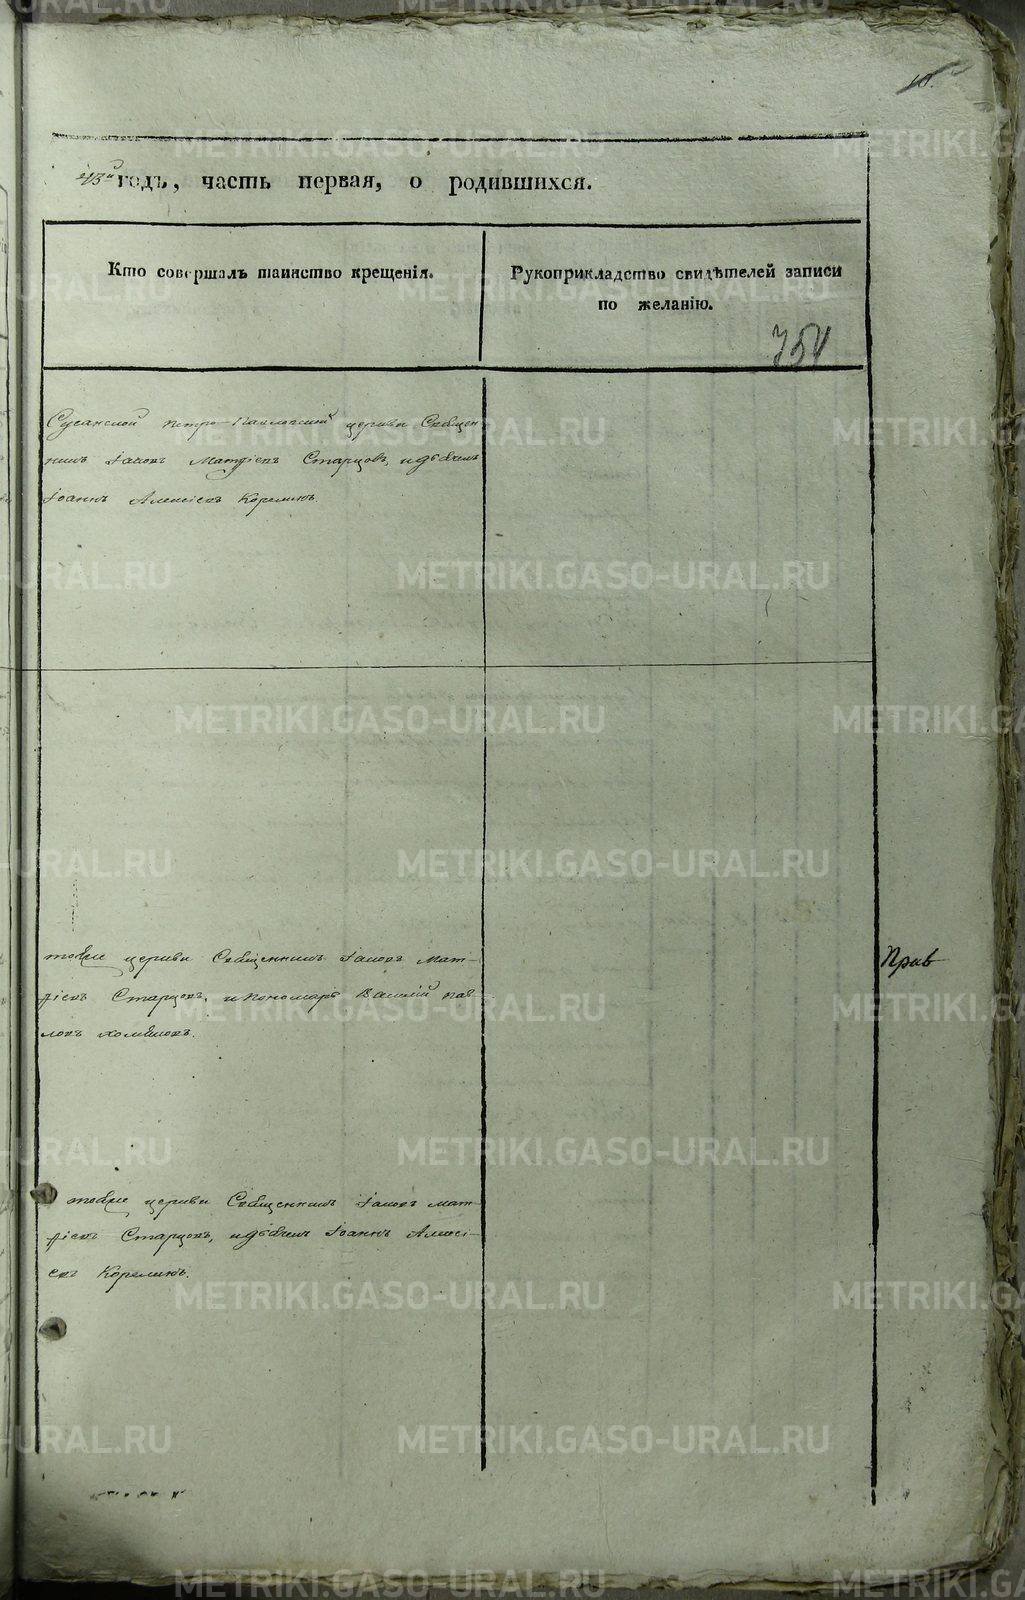 43й годъ, часть первая, о родившихся.
Кто совершалъ таинство крещенія.
Рукоприкладство свидѣтелей записи
по желанію.
754
Сусанской Петро-Павловской церкви Священ-
никъ Іаковъ Матѳіевъ Старцовъ, и дьячекъ
Іоаннъ Алексіевъ Корелинъ.
тойже церкви Священникъ Іаковъ Мат-
ѳіевъ Старцовъ, и пономарь Василій Пав-
ловъ Хомяковъ.
Прав
тойже церкви Священникъ Іаковъ Мат-
ѳіевъ Старцовъ, и дьячекъ Іоаннъ Алексі-
евъ Корелинъ.
METRIKI.GASO-URAL.RU